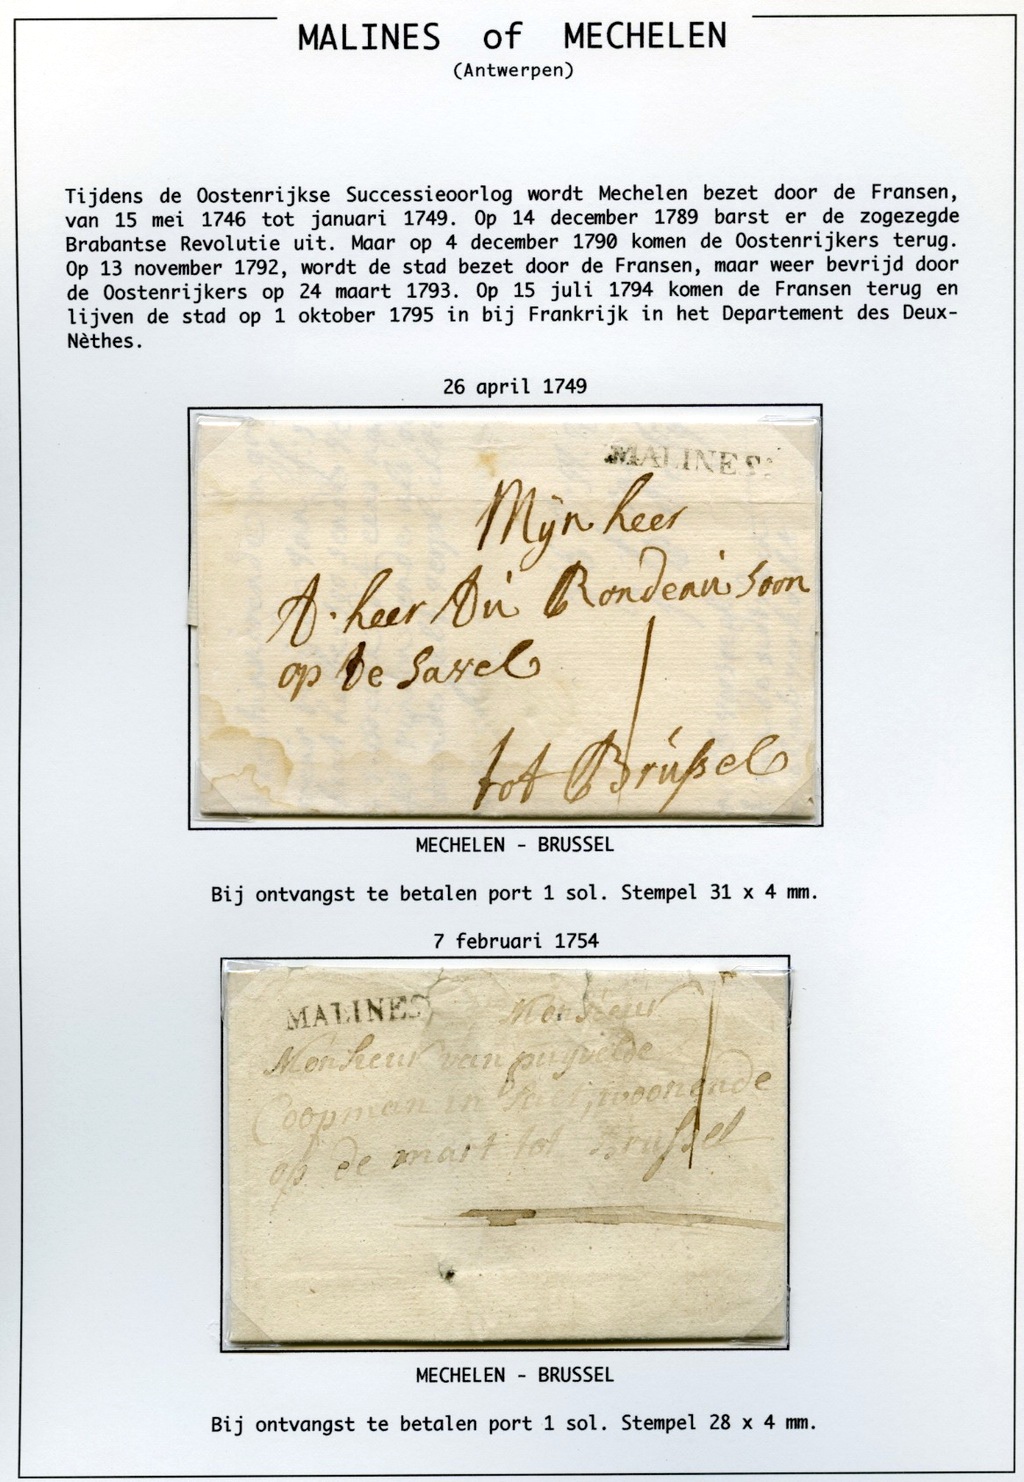 MALINES of MECHELEN
(Antwerpen)
Tijdens de Oostenrijkse Successieoorlog wordt Mechelen bezet door de Fransen,
van 15 mei 1746 tot januari 1749. Op 14 december 1789 barst er de zogezegde
Brabantse Revolutie uit. Maar op 4 december 1790 komen de Oostenrijkers terug.
Op 13 november 1792, wordt de stad bezet door de Fransen, maar weer bevrijd door
de Oostenrijkers op 24 maart 1793. Op 15 juli 1794 komen de Fransen terug en
lijven de stad op 1 oktober 1795 in bij Frankrijk in het Departement des Deux-
Nèthes.
26 april 1749
MALINES
Mÿn heer
heer
op de Savel
tot Brüssel
MECHELEN - BRUSSEL
Bij ontvangst te betalen port 1 sol. Stempel 31 x 4 mm.
7 februari 1754
MALINES
Monsieur
Monsieur van puyvelde
Coopman in woonende
op de mart tot Brussel
MECHELEN - BRUSSEL
Bij ontvangst te betalen port 1 sol. Stempel 28 x 4 mm.